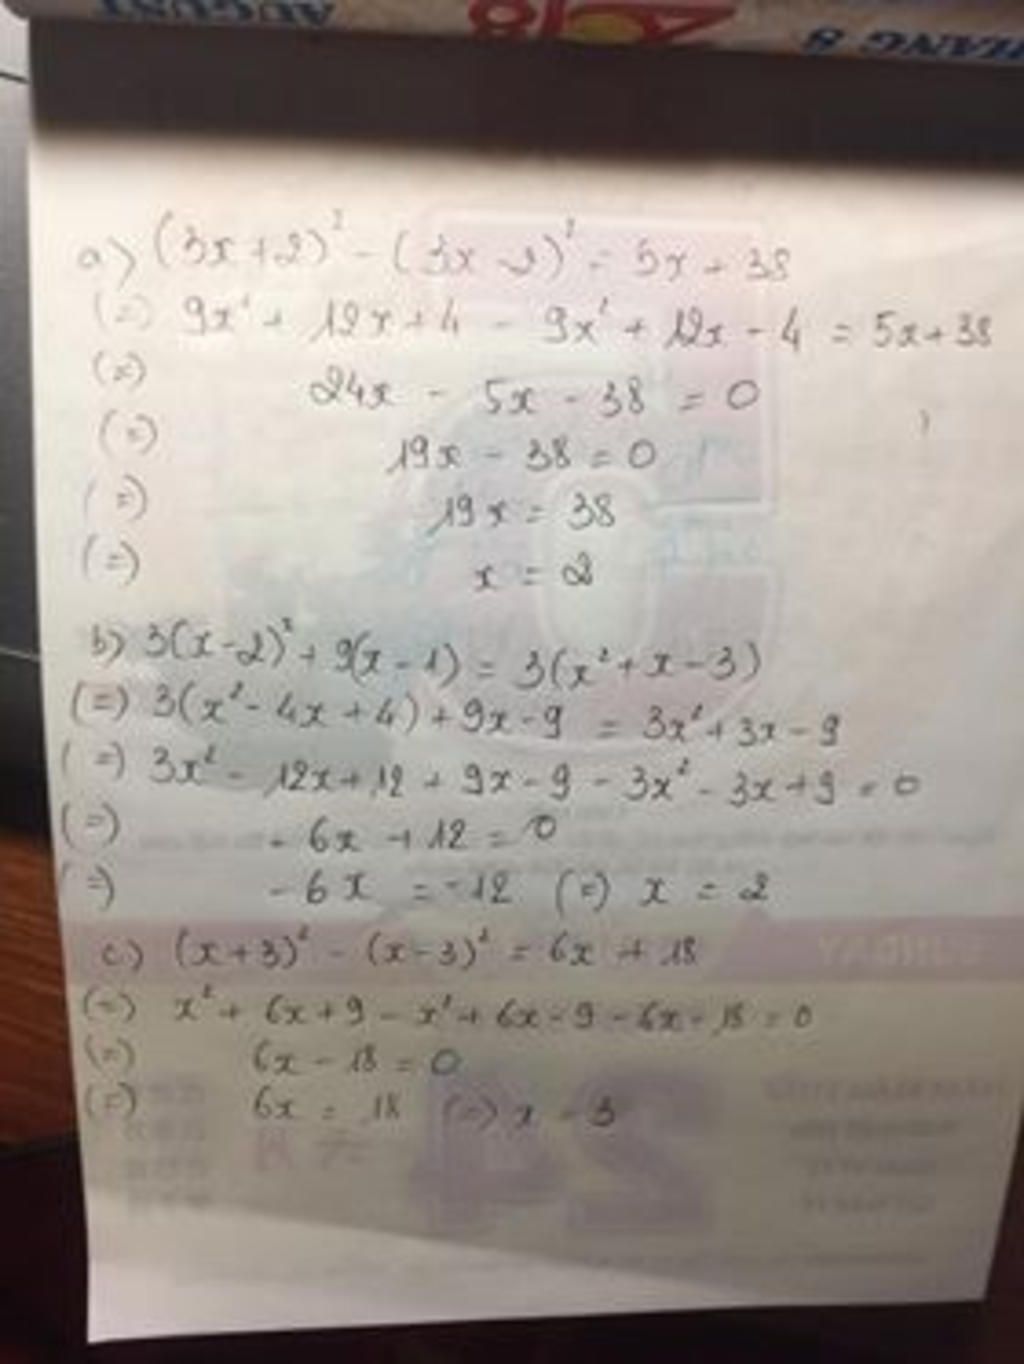 AUGUST 2018 THANG 8
a) (3x+2)² - (3x-2)² = 5x + 38
(=) 9x² + 12x + 4 - 9x² + 12x - 4 = 5x+38
(=) 24x - 5x - 38 = 0
(=) 19x - 38 = 0
(=) 19x = 38
(=) x = 2
b) 3(x-2)² + 9(x-1) = 3(x²+x-3)
(=) 3(x²-4x+4) + 9x-9 = 3x²+3x-9
(=) 3x² - 12x+12 + 9x-9 - 3x² - 3x+9 = 0
(=) -6x +12 = 0
(=) -6x = -12 (=) x = 2
c) (x+3)² - (x-3)² = 6x + 18
(=) x² + 6x+9 - x²+6x-9-6x-18 = 0
(=) 6x - 18 = 0
(=) 6x = 18 (=) x = 3
SUNDAY
24